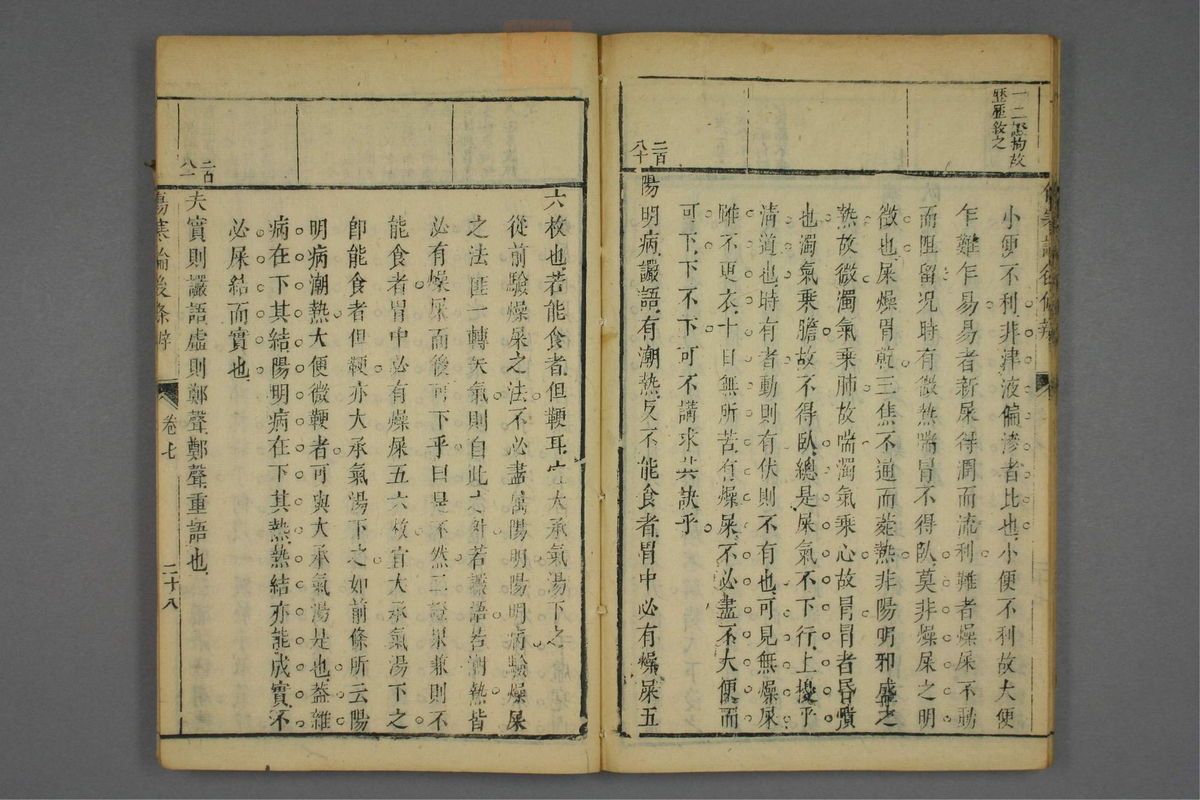 一二懸拘故
歷歷敘之
小便不利非津液偏滲者比也小便不利故大便
乍難乍易易者新屎得潤而流利難者燥屎不動
而阻留况時有微熱喘冒不得臥莫非燥屎之明
徴也屎燥胃乾三焦不通而菀熱非陽明邪盛之
熱故微濁氣乘肺故喘濁氣乘心故冒冒者昏憒
也濁氣乘膽故不得臥總是屎氣不下行上擾乎
清道也時有者動則有伏則不有也可見無燥屎
雖不更衣十日無所苦有燥屎不必盡不大便而
可下下不下可不講求其訣乎
二百
八十
陽明病譫語有潮熱反不能食者胃中必有燥屎五
六枚也若能食者但鞕耳宜大承氣湯下之
從前驗燥屎之法不必盡屬陽明陽明病驗燥屎
之法匪一轉矢氣則自此之外若譫語若潮熱皆
必有燥屎而後可下乎曰是不然二證果兼則不
能食者胃中必有燥屎五六枚宜大承氣湯下之
卽能食者但鞕亦大承氣湯下之如前條所云陽
明病潮熱大便微鞕者可與大承氣湯是也蓋雜
病在下其結陽明病在下其熱熱結亦能成實不
必屎結而實也
二百
八一
夫實則譫語虛則鄭聲鄭聲重語也
傷寒論後條辨
卷七
二十八